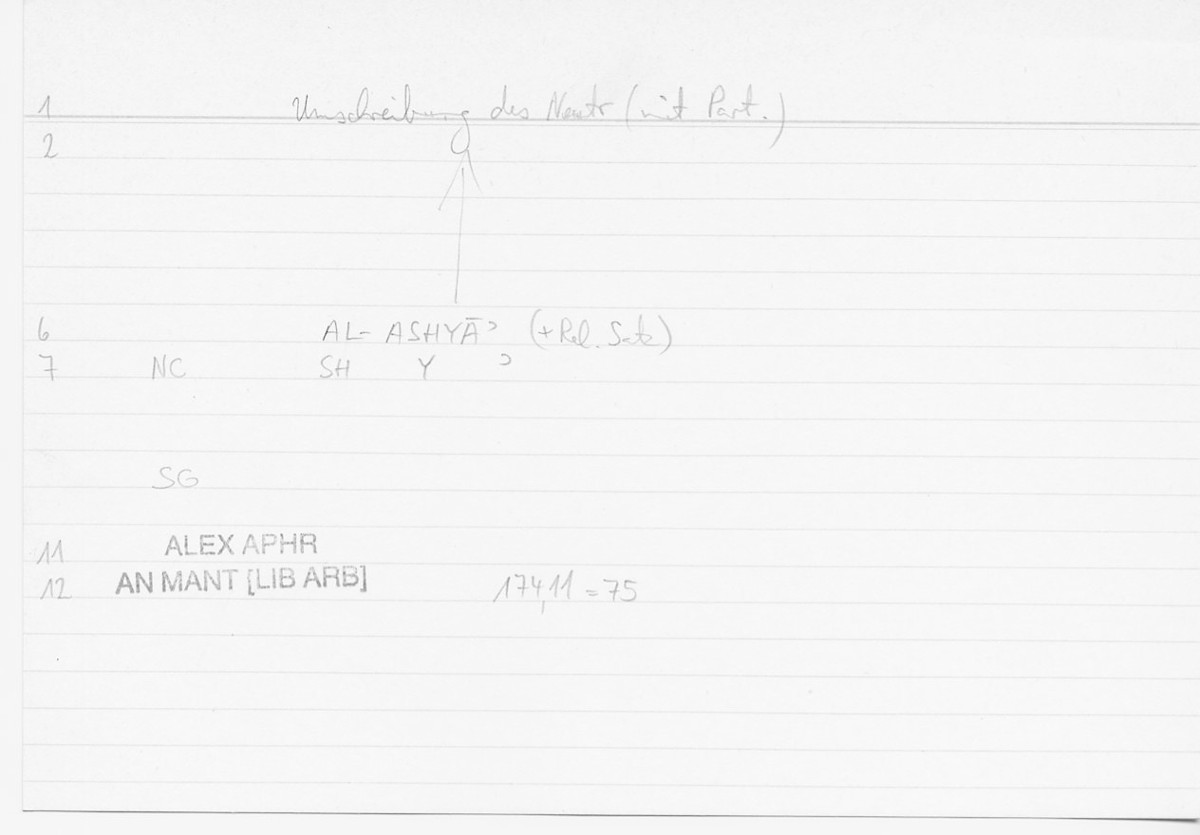 1 Umschreibung des Neutr (mit Part.)
2
6 AL- ASHYĀʾ (+ Rel. Satz)
7 NC SH Y ʾ
SG
11 ALEX APHR
12 AN MANT [LIB ARB] 174,11 = 75